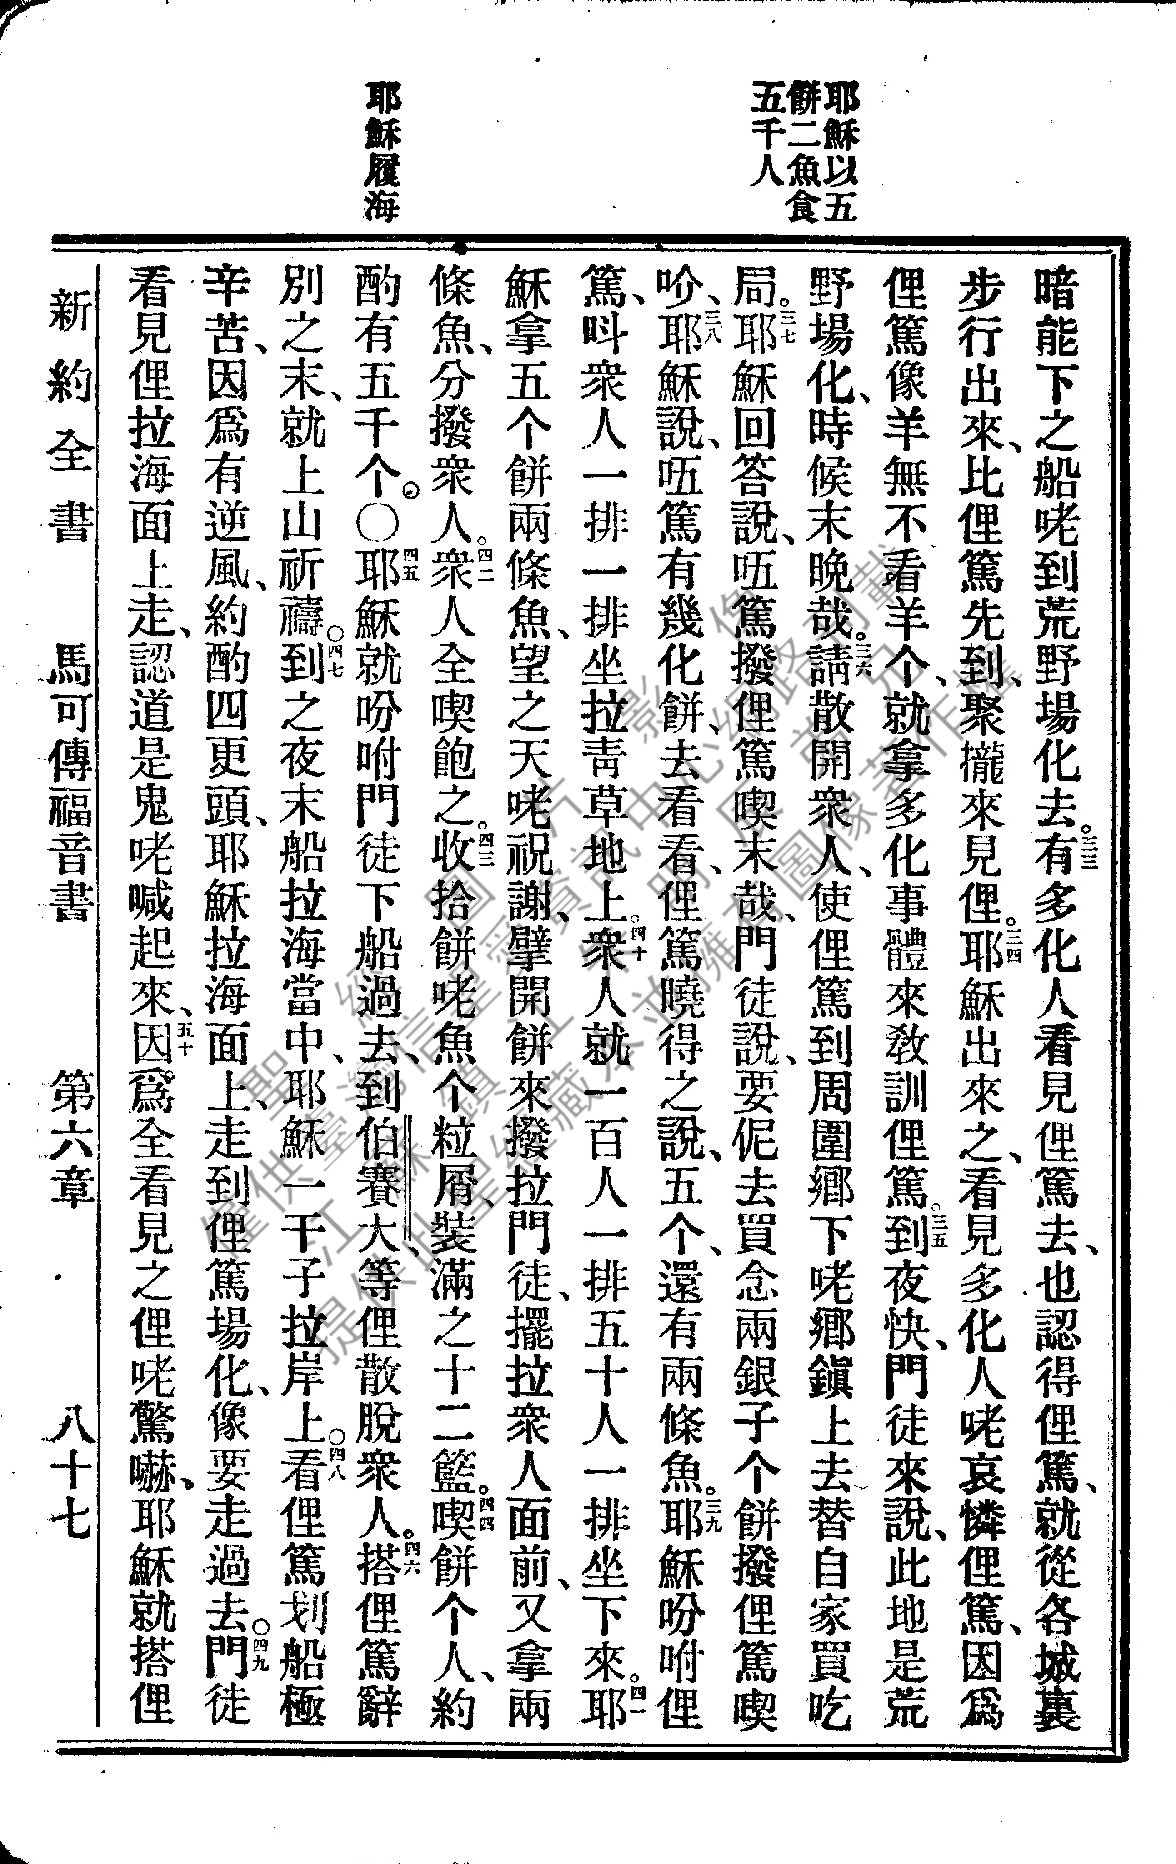 耶穌以五
餅二魚食
五千人
耶穌履海
暗能下之船咾到荒野場化去。三三有多化人看見俚篤去、也認得俚篤、就從各城裏
步行出來、比俚篤先到、聚攏來見俚。三四耶穌出來之、看見多化人咾哀憐俚篤、因爲
俚篤像羊無不看羊个、就拿多化事體來教訓俚篤。三五到夜快、門徒來說、此地是荒
野場化、時候末晚哉。三六請散開衆人、使俚篤到周圍鄉下咾鄉鎭上去替自家買吃
局。三七耶穌回答說、㕶篤撥俚篤喫末哉、門徒說、要伲去買念兩銀子个餅撥俚篤喫
吤、三八耶穌說、㕶篤有幾化餅、去看看、俚篤曉得之說、五个、還有兩條魚。三九耶穌吩咐俚
篤、呌衆人一排一排坐拉靑草地上。四十衆人就一百人一排五十人一排坐下來。四一耶
穌拿五个餅兩條魚、望之天咾祝謝、擘開餅來撥拉門徒、擺拉衆人面前、又拿兩
條魚、分撥衆人。四二衆人全喫飽之。四三收拾餅咾魚个粒屑、裝滿之十二籃。四四喫餅个人、約
酌有五千个。〇四五耶穌就吩咐門徒下船過去、到伯賽大、等俚散脫衆人。四六搭俚篤辭
別之末、就上山祈禱。四七到之夜末船拉海當中、耶穌一干子拉岸上。四八看俚篤划船極
辛苦、因爲有逆風、約酌四更頭、耶穌拉海面上、走到俚篤場化、像要走過去。四九門徒
看見俚拉海面上走、認道是鬼咾喊起來、五十因爲全看見之俚咾驚嚇、耶穌就搭俚
新約全書 馬可傳福音書 第六章 八十七